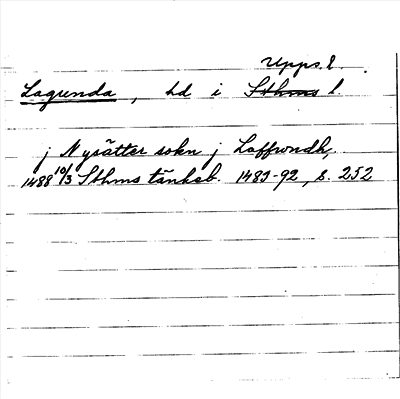 Upps. l.
Lagunda, hd i Sthms l.
j Nysätter sokn j Laffwndh,
1488 10/3 Sthms tänkeb. 1483-92, s. 252